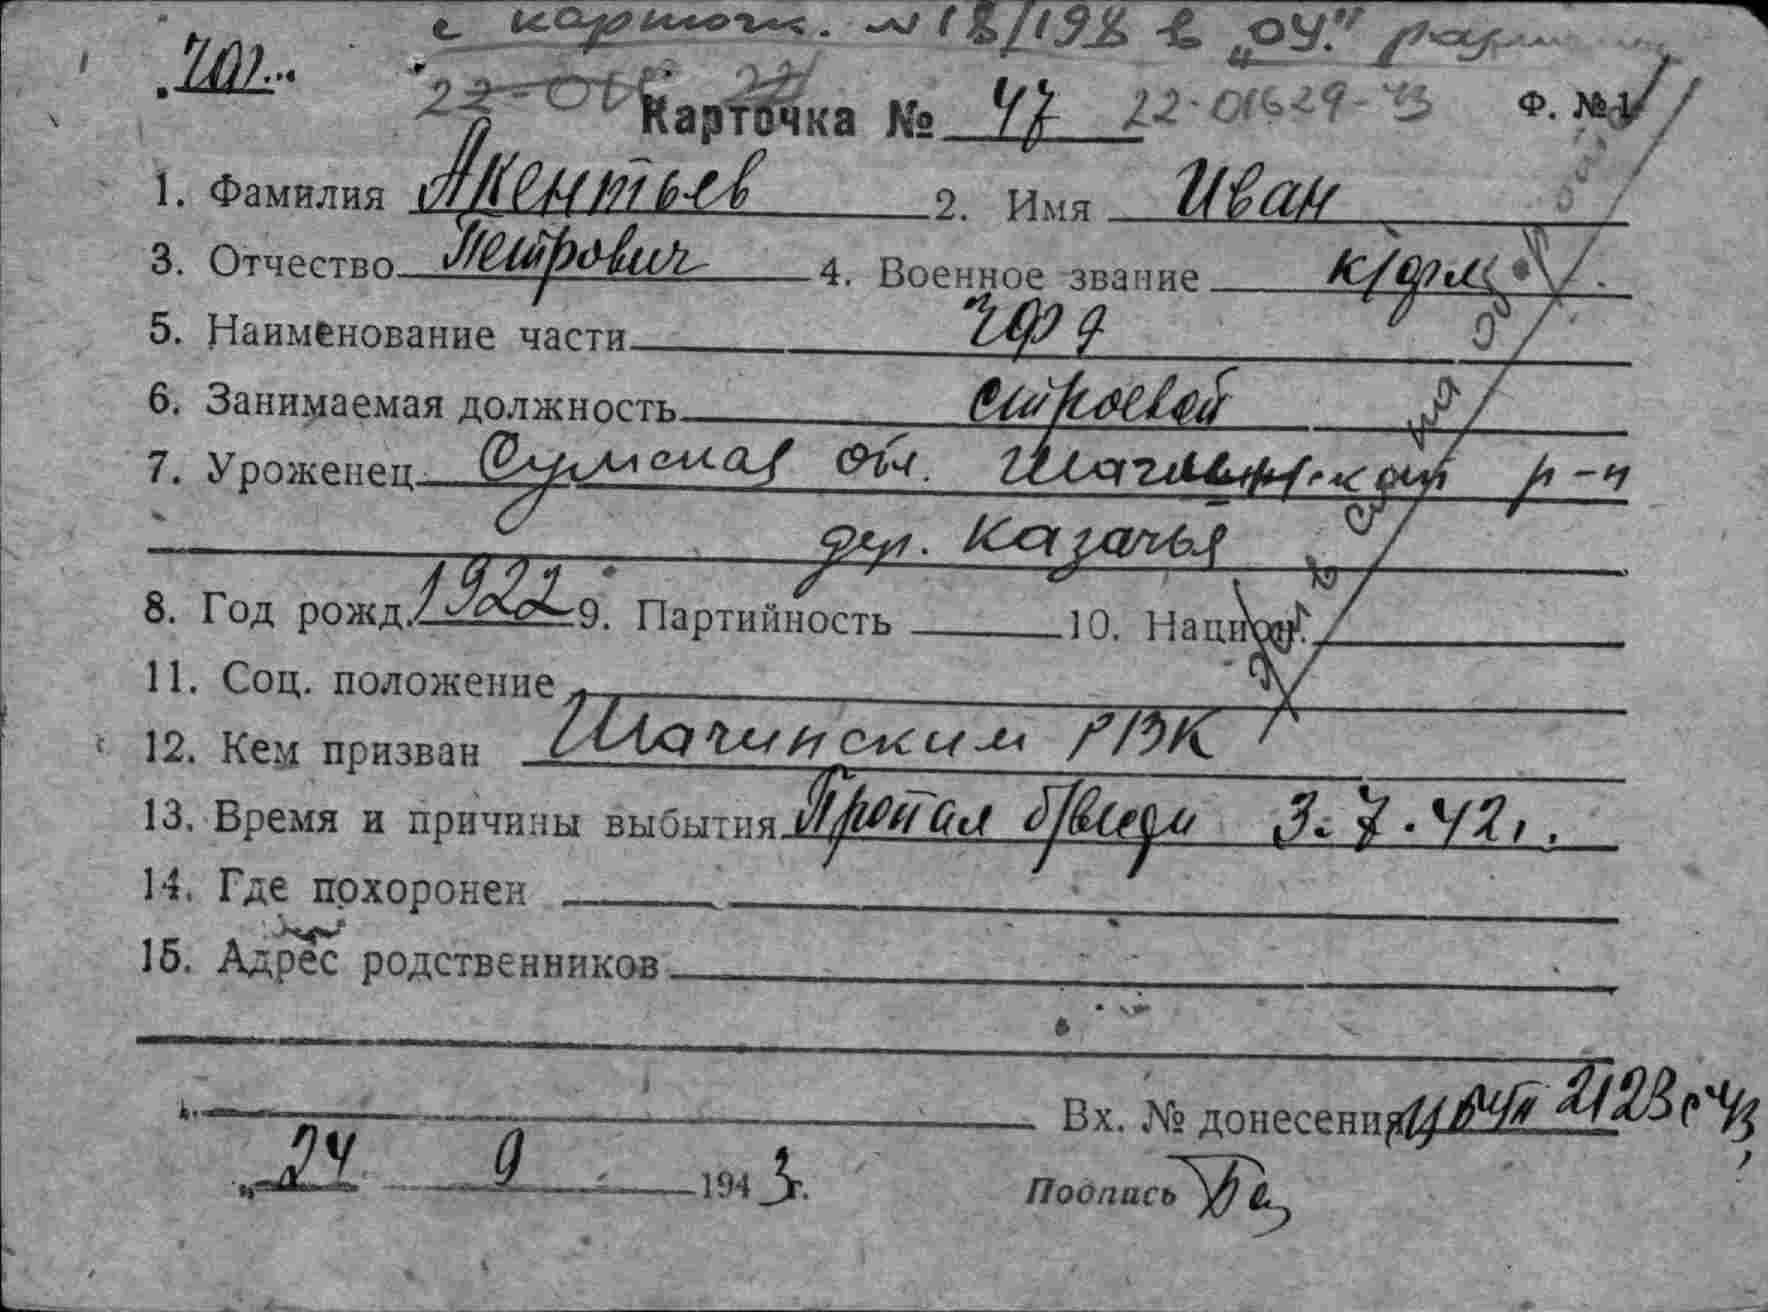 с карточк. № 18/198 в „ОУ."
Карточка № 47 22-01629-43 Ф. № 1
1. Фамилия Акентьев 2. Имя Иван
3. Отчество Петрович 4. Военное звание к/фл
5. Наименование части ЧФ
6. Занимаемая должность строевой
7. Уроженец Сумская обл. р-н
дер. Казачья
8. Год рожд. 1922 9. Партийность 10. Национ.
11. Соц. положение
12. Кем призван Шачинским РВК
13. Время и причины выбытия Пропал б/вести 3.7.42г.
14. Где похоронен
15. Адрес родственников
Вх. № донесения 2123с 43
„24 9 1943г.
Подпись